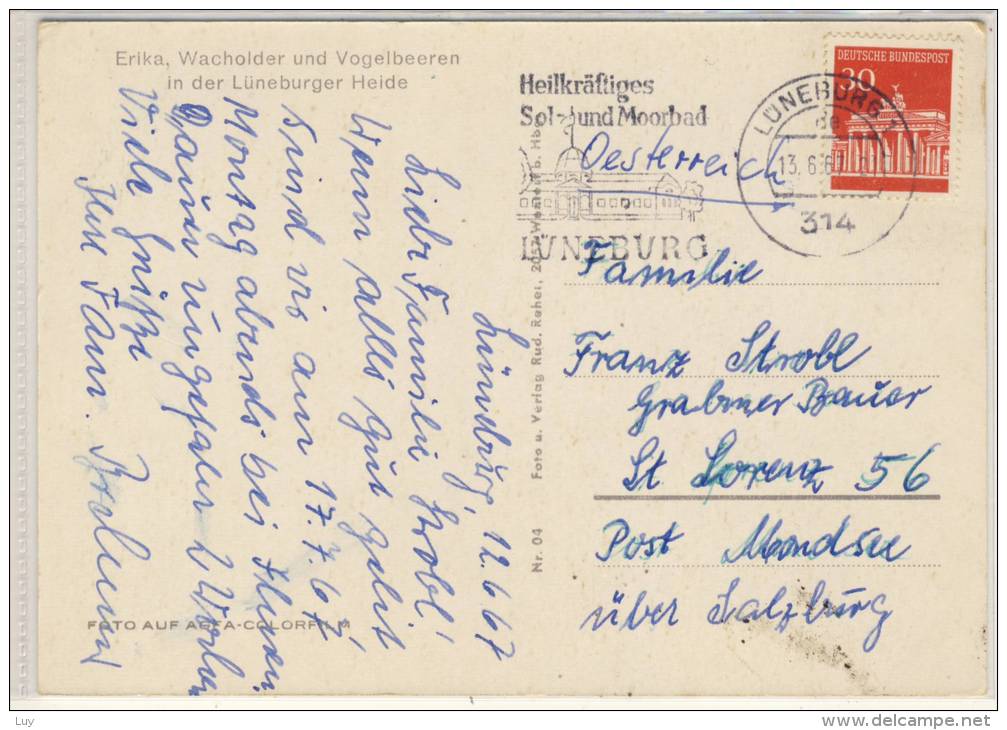 Erika, Wacholder und Vogelbeeren
in der Lüneburger Heide
Heilkräftiges
Sol- und Moorbad
LÜNEBURG
DEUTSCHE BUNDESPOST
30
LÜNEBURG 1
de
13.6.67
314
Oesterreich
Familie
Franz Strobl
Grabner Bauer
St Lorenz 56
Post Mondsee
über Salzburg
Lüneburg, 12.6.67
Liebe Familie Strobl!
Wenn alles gut geht
sind wir am 17.7.67
Montag abends bei Ihnen
Dauer ungefähr 2 Wochen
Viele Grüße
Ihre Fam.
Nr. 04
Foto u. Verlag Rud. Reher, 2057 Wentorf b. Hbg.
FOTO AUF AGFA-COLORFILM
Luy
delcampe.net